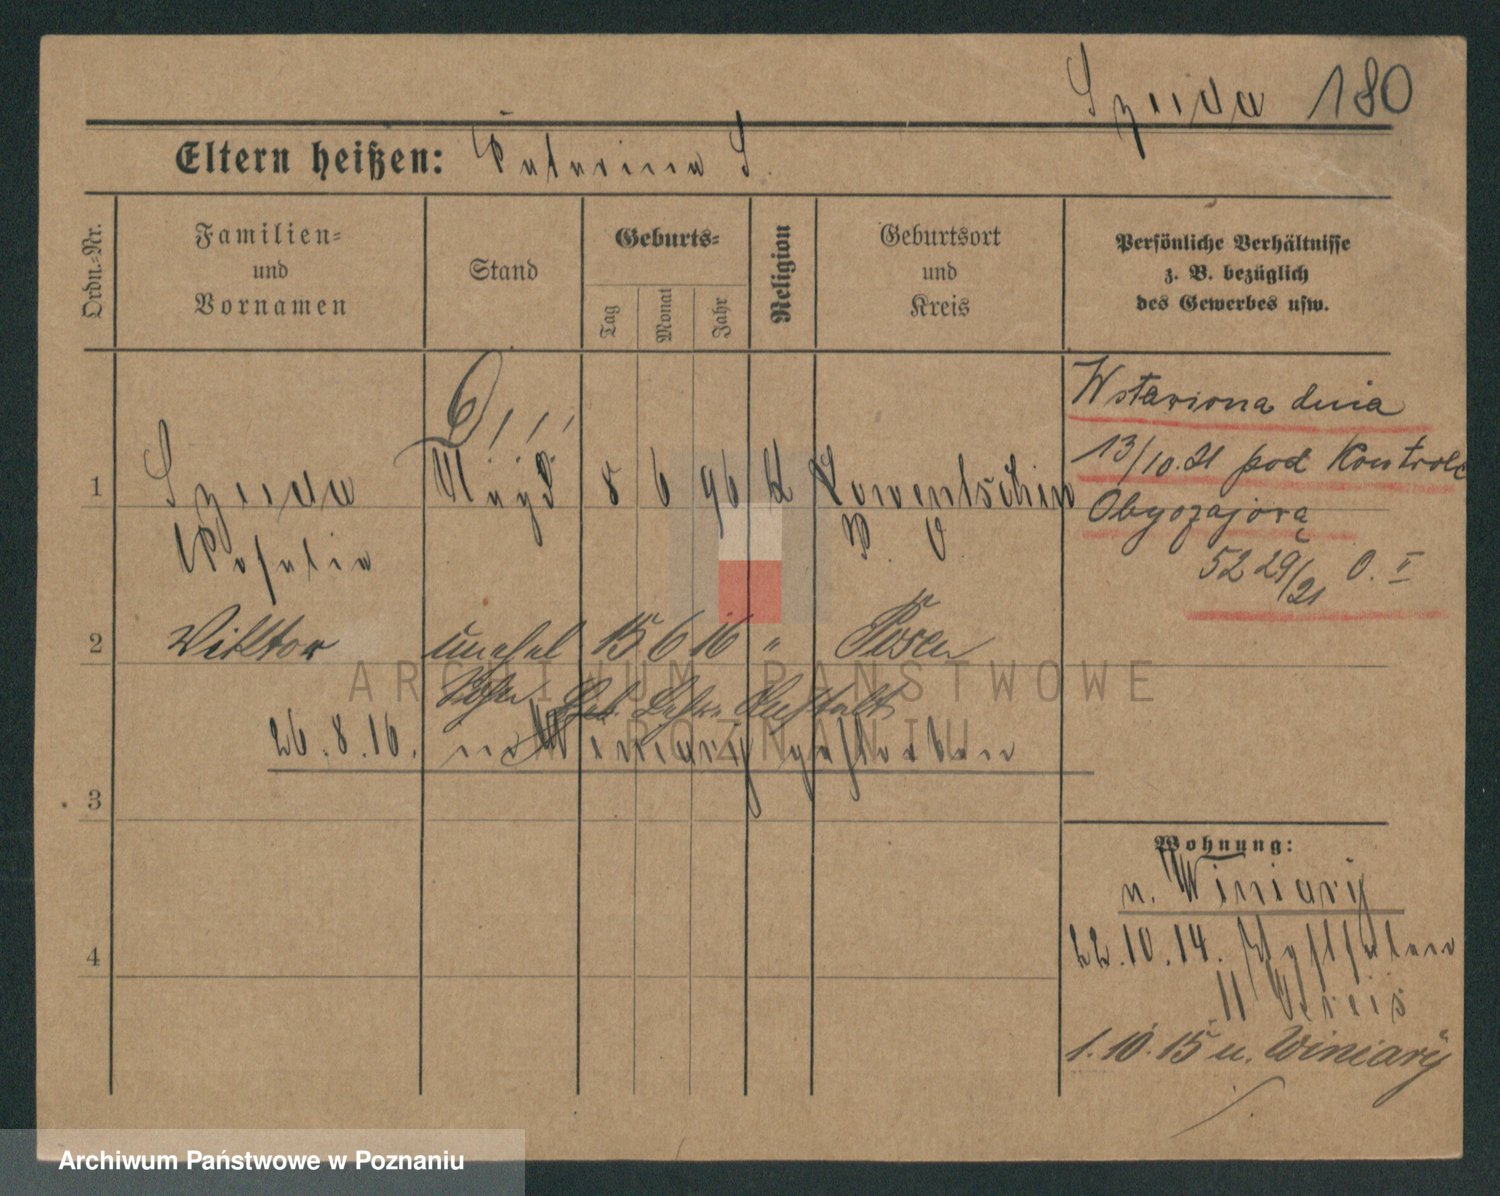 Szuda 180
Eltern heißen: Katarina S.
Ordn.-Nr.
Familien-
und
Vornamen
Stand
Geburts-
Tag
Monat
Jahr
Religion
Geburtsort
und
Kreis
Persönliche Verhältnisse
z. B. bezüglich
des Gewerbes usw.
Wstawiona dnia
13/10.21 pod Kontrolę
Obyczajową
5229/21 O. I
1 Szuda Magd 8 6 96 K Lowentschin
Rosalie P. O.
2 Viktor unehel 15 6 16 " Posen
Sohn Geb. Anstalt
26.8.16. in Winiary gestorben
3
4
Wohnung:
n. Winiary
22.10.14.
II Kreis
1.10.15 n. Winiary
ARCHIWUM PAŃSTWOWE
W POZNANIU
Archiwum Państwowe w Poznaniu